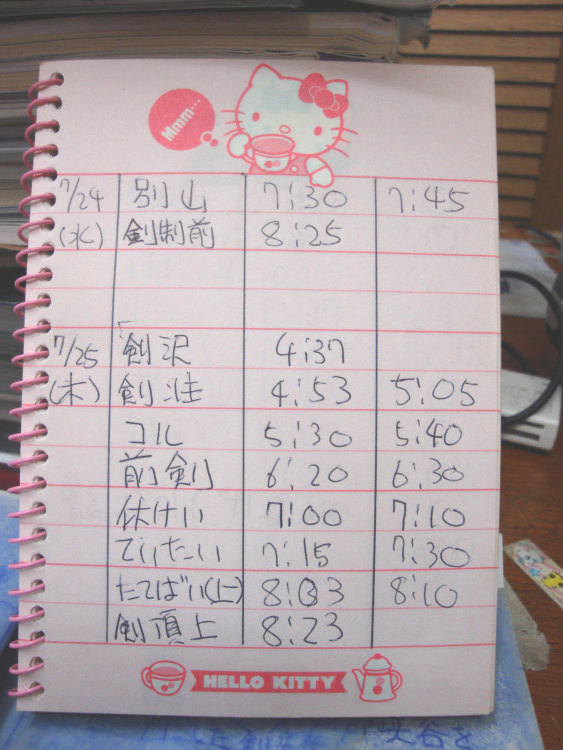 Mmm...
7/24 別山 7:30 7:45
(水) 剣制前 8:25
7/25 剣沢 4:37
(木) 剣 5:05 4:53
コル 5:30 5:40
前剣 6:20 6:30
休けい 7:00 7:10
ていたい 7:15 7:30
たてばい(上) 8:03 8:10
剣頂上 8:23
HELLO KITTY